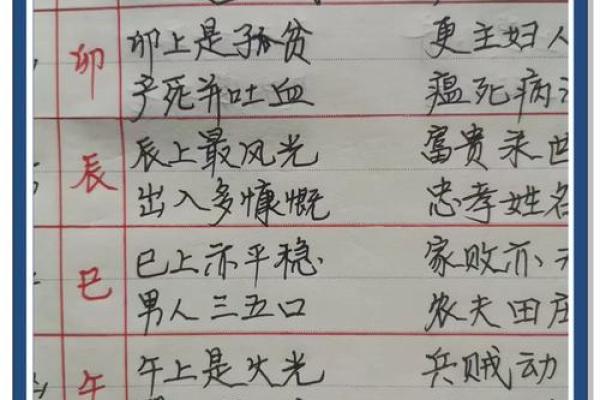 卯
卯上是孤贫 更主妇人
产死并吐血 瘟死病
辰
辰上最风光 富贵来世
出入多慷慨 忠孝姓名
巳
巳上亦平稳 家败亦
男人三五口 农夫田庄
午
午上是火光 兵贼动